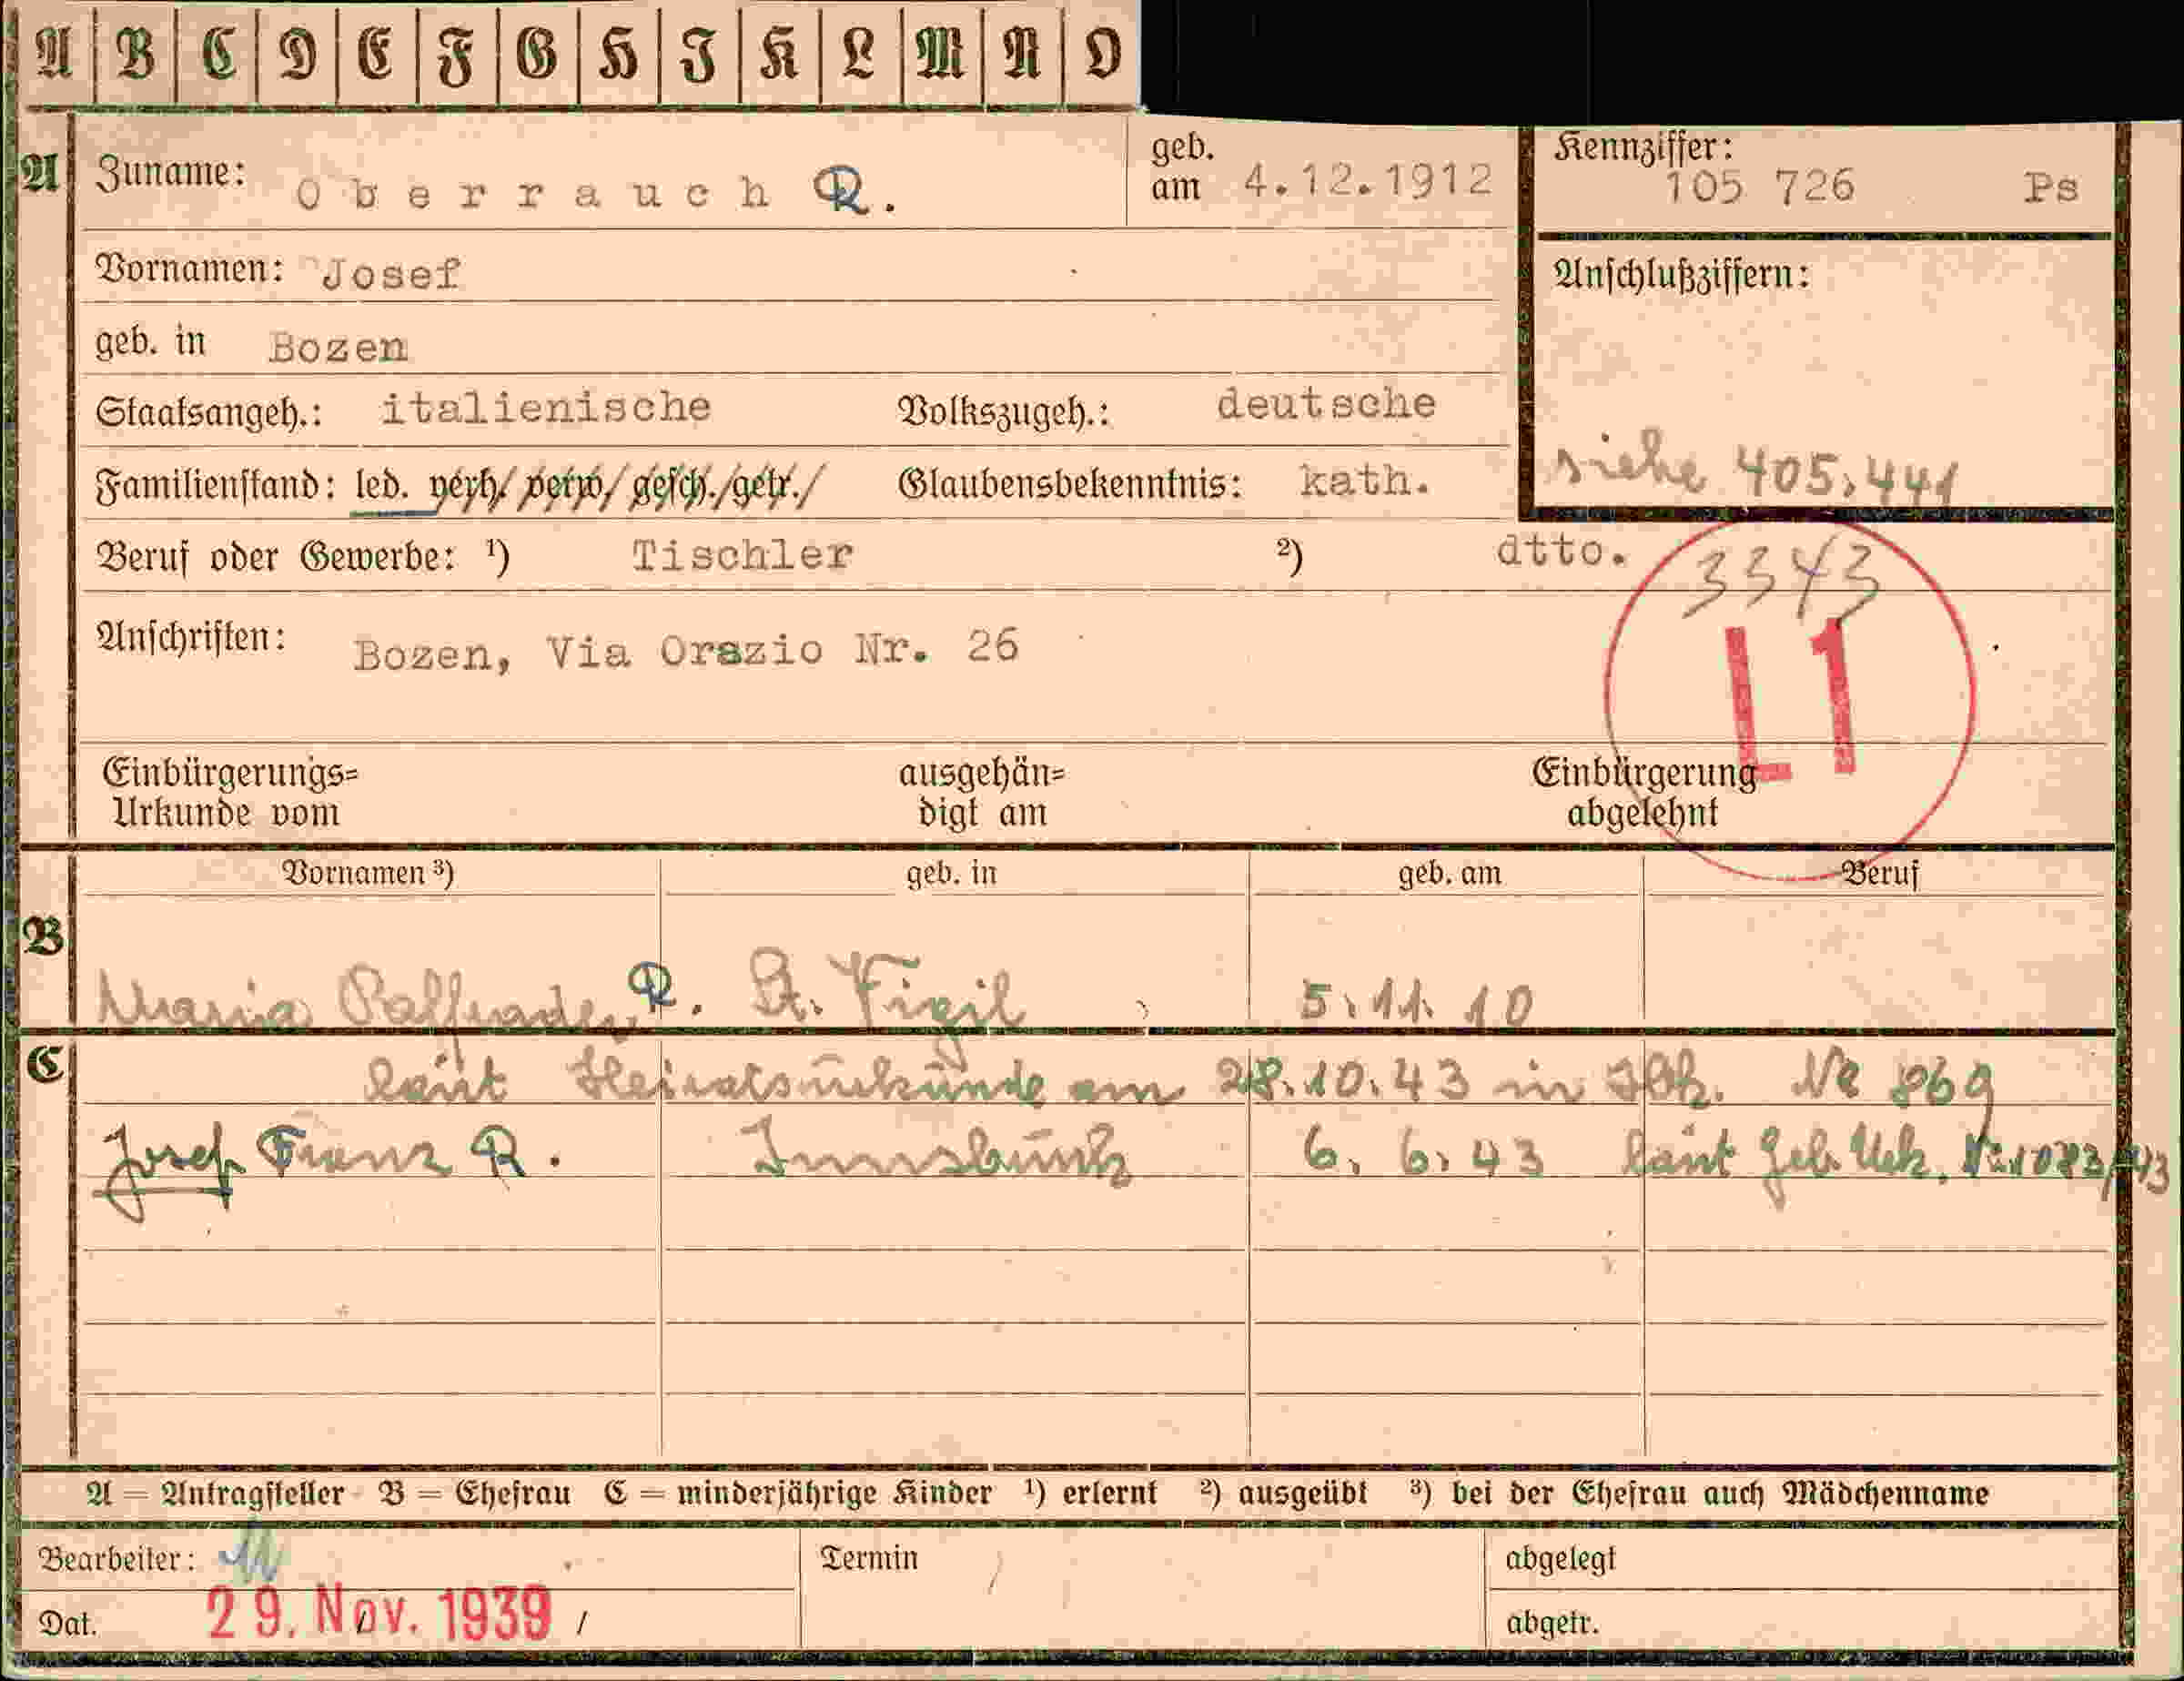 A B C D E F G H I K L M N O
A Zuname: Oberrauch R. geb. am 4.12.1912 Kennziffer: 105 726 Ps
Vornamen: Josef Anschlußziffern:
geb. in Bozen
Staatsangeh.: italienische Volkszugeh.: deutsche
siehe 405,441
Familienstand: led. verh/ verw/ gesch./getr./ Glaubensbekenntnis: kath.
Beruf oder Gewerbe: ¹) Tischler ²) dtto.
3343
L1
Anschriften: Bozen, Via Orazio Nr. 26
Einbürgerungs= ausgehän= Einbürgerung
Urkunde vom digt am abgelehnt
Vornamen ³) geb. in geb. am Beruf
B
Maria Palfrader R. St. Vigil 5.11.10
C
laut Heiratsurkunde am 28.10.43 in Ibk. Nr 869
Josef Franz R. Innsbruck 6.6.43 laut Geb. Urk. Nr. 1083/43
A = Antragsteller B = Ehefrau C = minderjährige Kinder ¹) erlernt ²) ausgeübt ³) bei der Ehefrau auch Mädchenname
Bearbeiter: Termin abgelegt
Dat. 29. Nov. 1939 / abgetr.